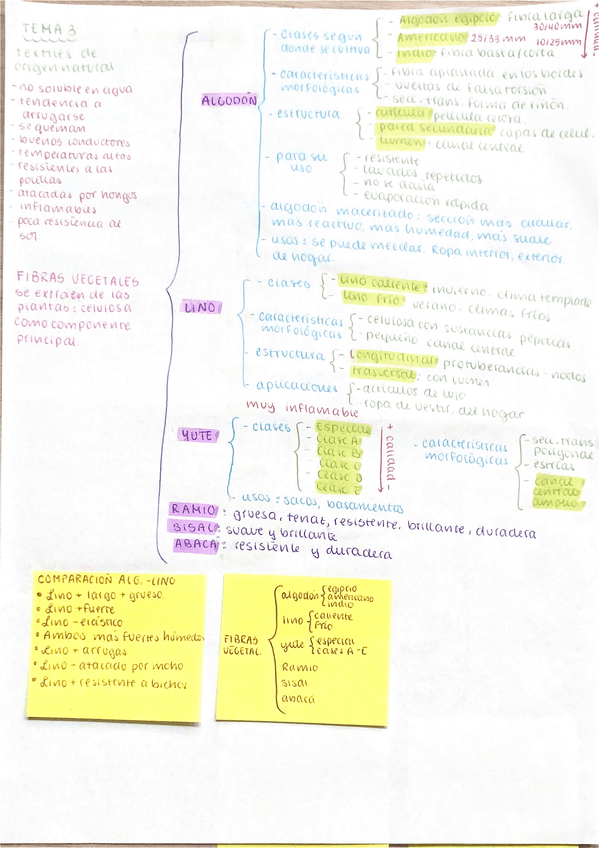 TEMA 3
textiles de
origen natural
- no soluble en agua
- tendencia a
arrugarse
- se queman
- buenos conductores
- temperaturas altas
- resistentes a las
polillas
- atacadas por hongos
- inflamables
- poca resistencia al
sol.
FIBRAS VEGETALES
se extraen de las
plantas: celulosa
como componente
principal.
ALGODÓN
- clases según
donde se cultiva
- Algodón egipcio fibra larga
30/40mm
- Americano 25/33 mm
- Indio fibra basta/corta 10/25mm
- características
morfológicas
- fibra aplastada en los bordes
- vueltas de falsa torsión
- sec. trans. forma de riñón.
- estructura
- cutícula película cérea.
- pared secundaria capas de celul.
- lumen: canal central
- para su
uso
- resistente
- lavados repetidos
- no se daña
- evaporación rápida
- algodón mercerizado: sección más circular,
más reactivo, más humedad, más suave
- usos: se puede mezclar. Ropa interior, exterior,
de hogar.
LINO
- clases
- Lino caliente: invierno. clima templado
- Lino frío: verano. climas fríos
- características
morfológicas
- celulosa con sustancias pépticas
- pequeño canal central
- estructura
- Longitudinal: protuberancias-nodos
- trasversal: con lumen
- aplicaciones
- artículos de lujo
- ropa de vestir, del hogar
muy inflamable
YUTE
- clases
- Especial
- clase A
- clase B
- clase C
- clase D
- clase E
+ calidad -
- características
morfológicas
- sec. trans
poligonal
- estrías
- canal
central
amplio
- usos: sacos, basamentos
RAMIO: gruesa, tenaz, resistente, brillante, duradera
SISAL: suave y brillante
ABACÁ: resistente y duradera
COMPARACIÓN ALG.-LINO
• Lino + largo + grueso.
• Lino + fuerte
• Lino - elástico
• Ambos más fuertes húmedos
• Lino + arrugas
• Lino - atacado por moho
• Lino + resistente a bichos
FIBRAS
VEGETAL.
algodón
egipcio
americano
indio
lino
caliente
frío
yute
especial
clases A-E
Ramio
sisal
abacá